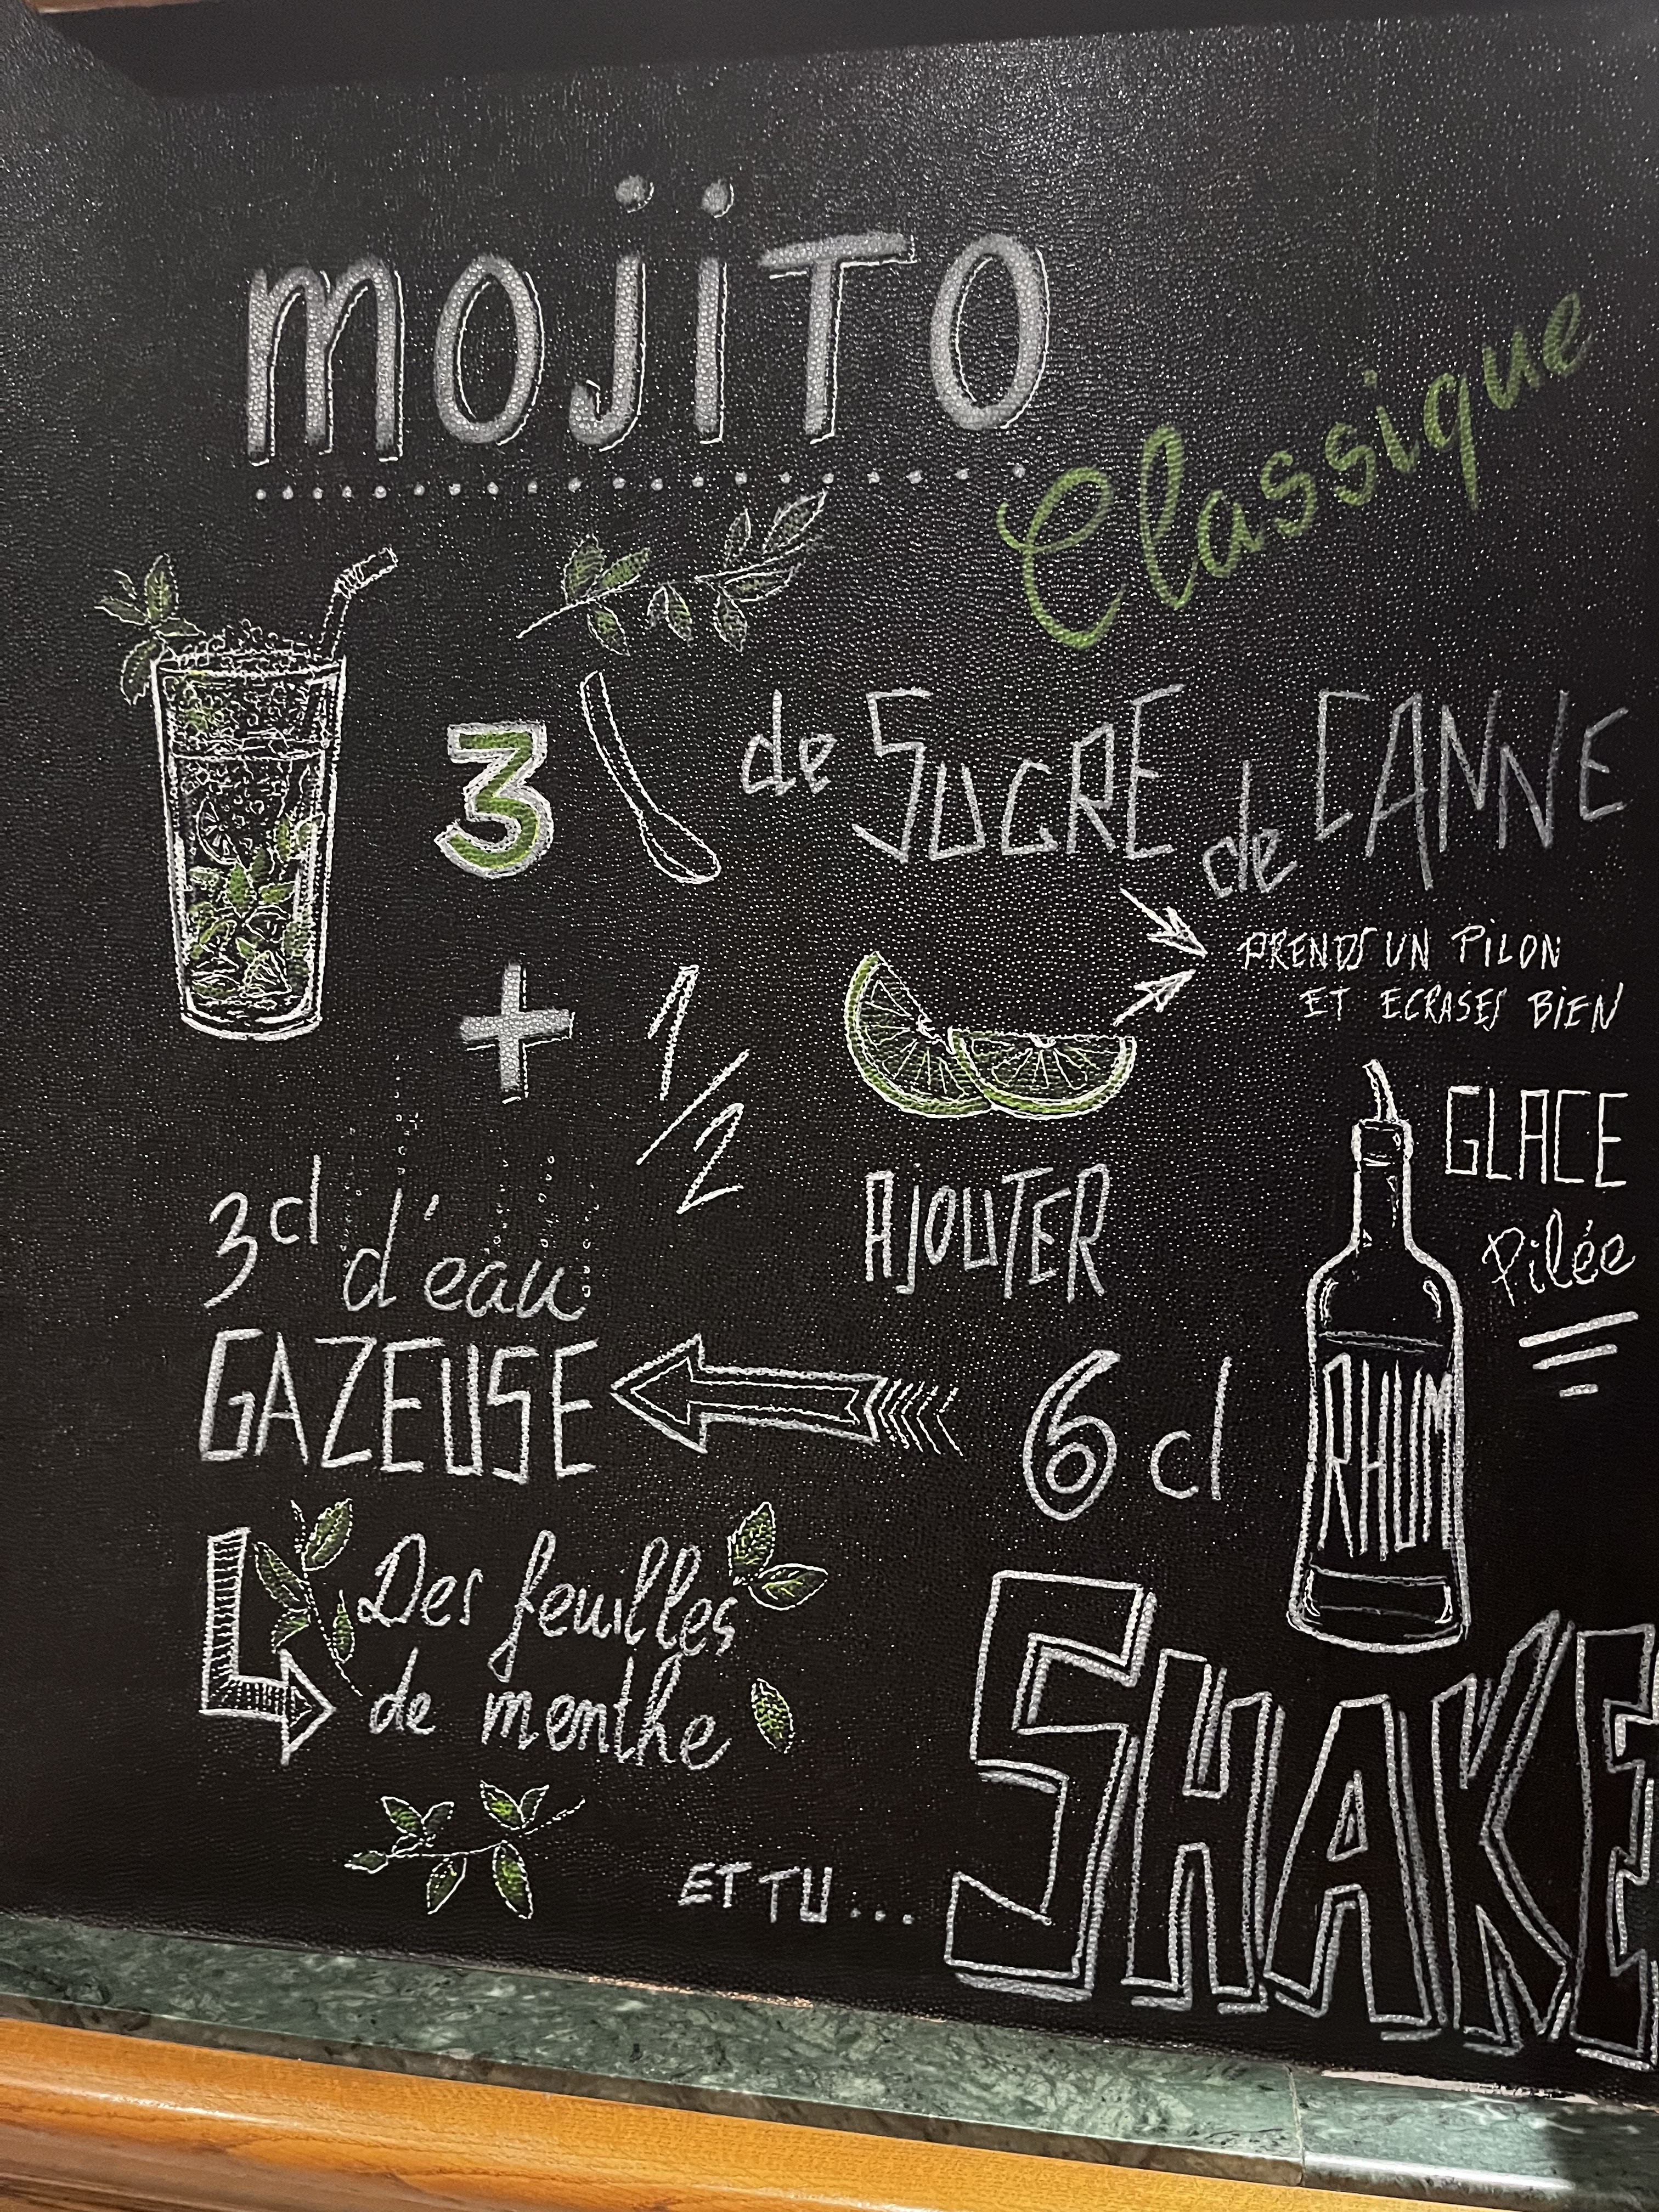 MOJITO
Classique
3 de SUCRE de CANNE
+ 1/2
PRENDS UN PILON
ET ECRASES BIEN
AJOUTER
GLACE
Pilée
RHUM
6 cl
3 cl d'eau
GAZEUSE
Des feuilles
de menthe
ET TU...
SHAKE